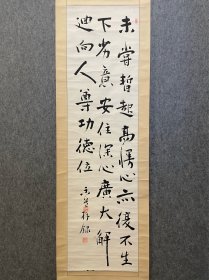 未嘗暫起高慢心亦復不生
下劣意安住深心廣大解
迴向人尊功德位